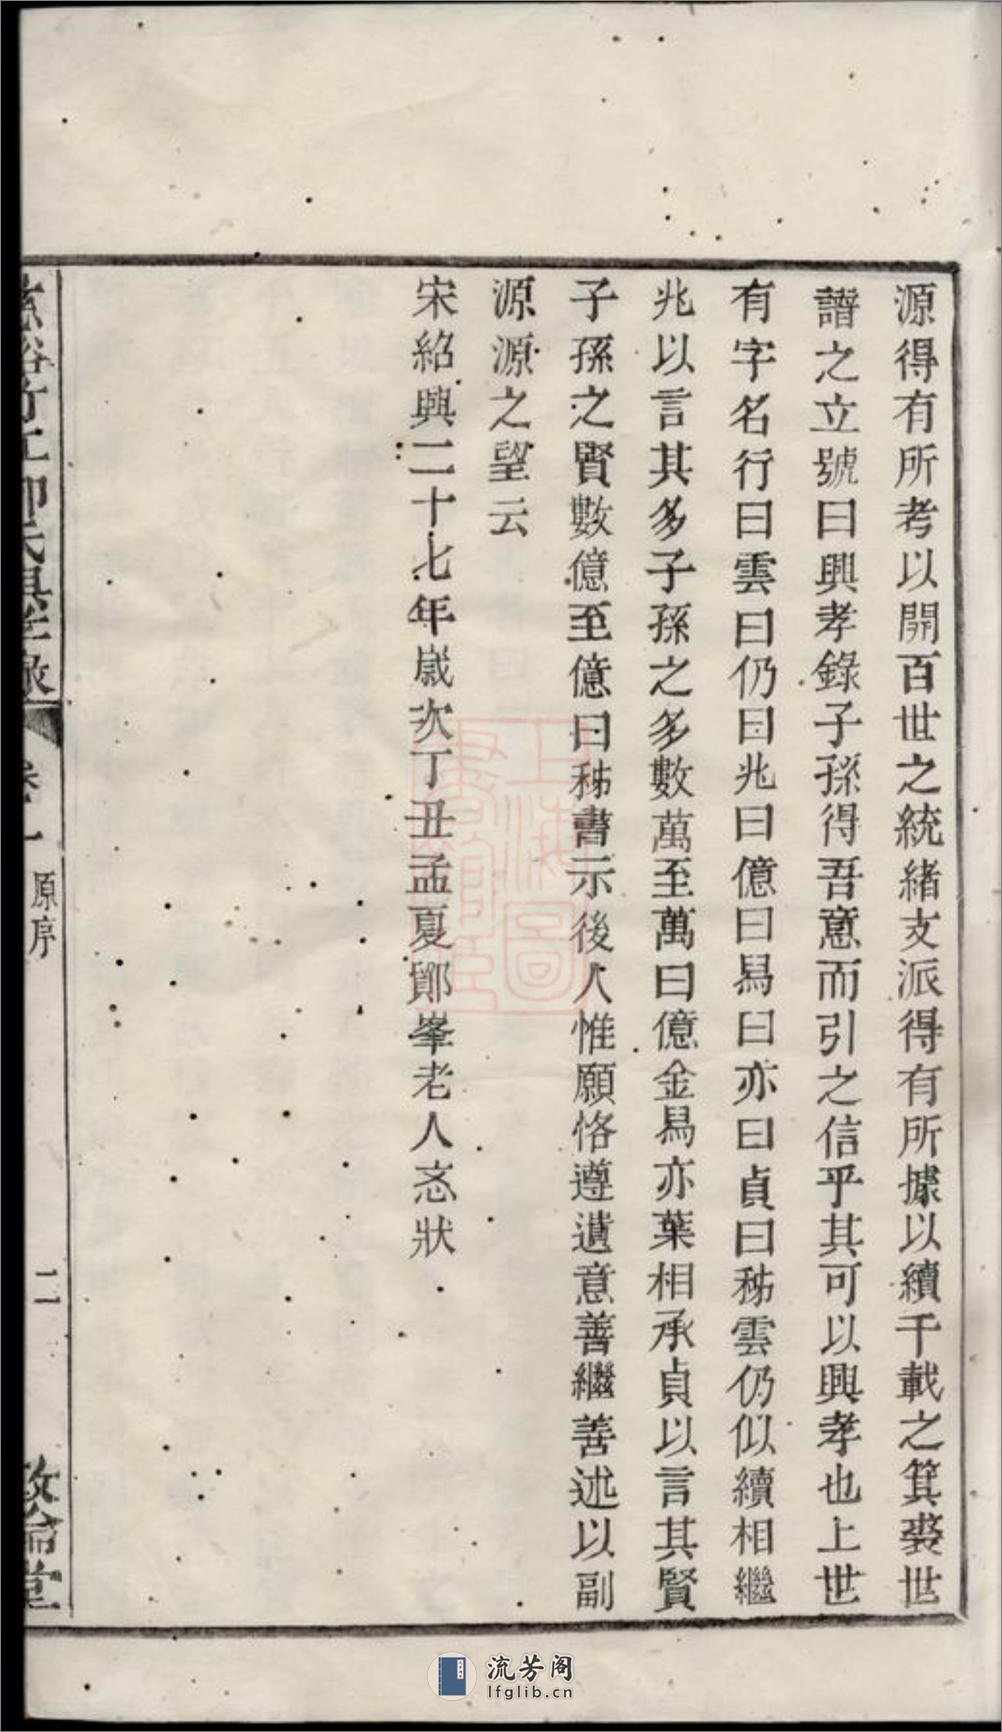 源得有所考以開百世之統緒支派得有所據以續千載之箕裘世
譜之立號曰興孝錄子孫得吾意而引之信乎其可以興孝也上世
有字名行曰雲曰仍曰兆曰億曰昜曰亦曰貞曰秭雲仍似續相繼
兆以言其多子孫之多數萬至萬曰億金昜亦葉相承貞以言其賢
子孫之賢數億至億曰秭書示後人惟願恪遵遺意善繼善述以副
源源之望云
宋紹興二十七年嵗次丁丑孟夏鄮峯老人忞狀
慈谿竹江卹氏興孝錄
卷一
原序
二
敦倫堂
上海圖書館藏
流芳阁
lfglib.cn